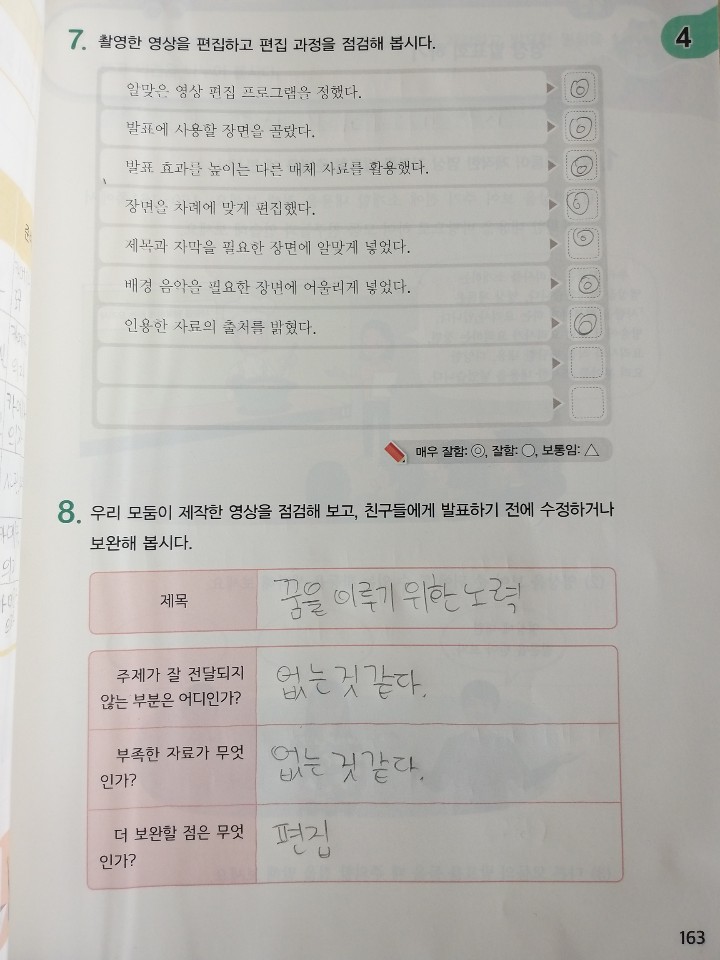 4
7. 촬영한 영상을 편집하고 편집 과정을 점검해 봅시다.
알맞은 영상 편집 프로그램을 정했다. ▶ ◎
발표에 사용할 장면을 골랐다. ▶ ◎
발표 효과를 높이는 다른 매체 자료를 활용했다. ▶ ◎
장면을 차례에 맞게 편집했다. ▶ ◎
제목과 자막을 필요한 장면에 알맞게 넣었다. ▶ ◎
배경 음악을 필요한 장면에 어울리게 넣었다. ▶ ◎
인용한 자료의 출처를 밝혔다. ▶ ◎
매우 잘함: ◎, 잘함: ○, 보통임: △
8. 우리 모둠이 제작한 영상을 점검해 보고, 친구들에게 발표하기 전에 수정하거나
보완해 봅시다.
제목 꿈을 이루기 위한 노력
주제가 잘 전달되지
않는 부분은 어디인가?
없는 것 같다.
부족한 자료가 무엇
인가?
없는 것 같다.
더 보완할 점은 무엇
인가?
편집
163